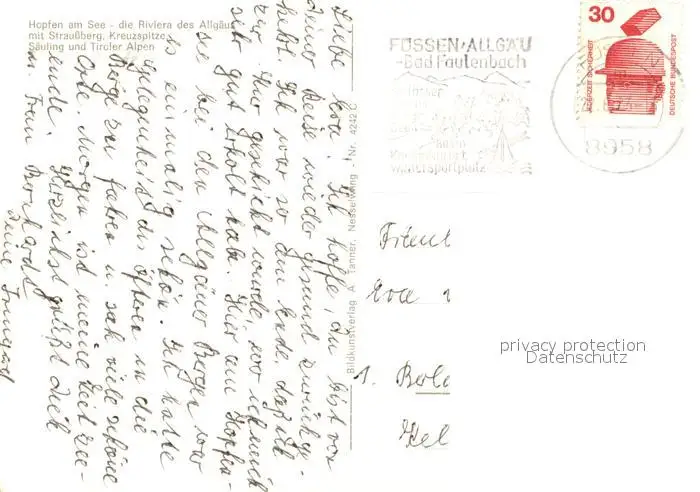 Hopfen am See - die Riviera des Allgäus
mit Straußberg, Kreuzspitze,
Säuling und Tiroler Alpen
Liebe Eva! Ich hoffe, du bist von
deiner Reise wieder gesund zurückge-
kehrt. Ich war so am Ende, daß ich
zur Kur geschickt wurde, wo ich mich
sehr gut erholt habe. Hier am Hopfen-
see bei den Allgäuer Bergen war
es einmalig schön. Ich hatte
Gelegenheit des öfteren in die
Berge zu fahren u. sah viele schöne
Orte. Morgen ist meine Zeit zu-
ende. Herzlichst grüßt dich
u. Frau Bernhardt
deine Irmgard
Bildkunstverlag A. Tanner, Nesselwang - Nr. 4242 C
FÜSSEN·ALLGÄU
-Bad Faulenbach
Kneippkurort
wintersportplatz
8958
30
JEDERZEIT SICHERHEIT
DEUTSCHE BUNDESPOST
Eva
1. Berl
privacy protection
Datenschutz